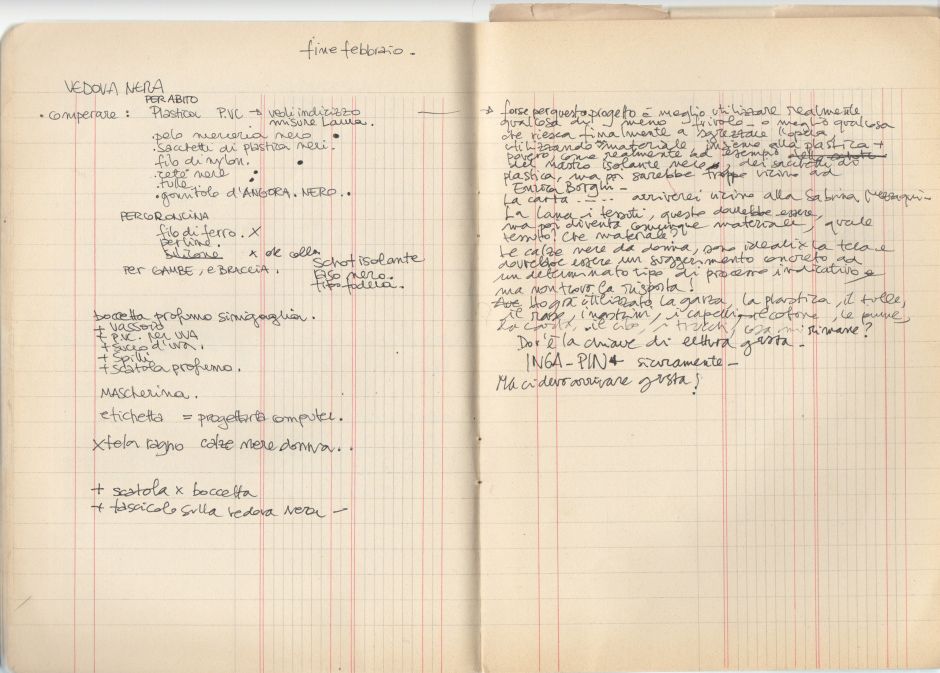 fine febbraio.
VEDOVA NERA
PER ABITO
• comperare : Plastica P.V.C → vedi indirizzo
misure Laura.
• pelo merceria nero •
• sacchetti di plastica neri.
• filo di nylon.
• rete nere •
• tulle •
• gomitolo d'ANGORA. NERO. .
PER GRONCINA
filo di ferro. X
perline.
silicone x ok colla.
Schot isolante
PER GAMBE, e BRACCIA. raso nero.
tipo fodera.
boccetta profumo simigaglia.
+ vassoio
+ P.V.C. per UVA
+ succo d'uva.
+ spilli
+ scatola profumo.
MASCHERINA.
etichetta = progettarla computer.
X tela ragno calze nere donna. .
+ scatola x boccetta
+ fascicolo sulla vedova nera —
→ forse per questo progetto è meglio utilizzare realmente
qualcosa di meno frivolo o meglio qualcosa
che riesca finalmente a l'opera,
utilizzando materiale, insieme alla plastica +
povero, come realmente ad esempio
del nastro isolante nero, dei sacchetti di
plastica, ma poi sarebbe troppo vicino ad
Enrica Borghi —
La carta ..... arriverei vicino alla Sabrina Mezzaqui —
La lana i tessuti, questo dovrebbe essere,
ma poi diventa comunque materiale, quale
tessuto? Che materiale?
Le calze nere da donna, sono ideali x la tela e
dovrebbe essere un suggerimento concreto ad
un determinato tipo di processo indicativo e
ma non trovo la risposta!
Ho già utilizzato la garza, la plastica, il tulle,
il raso, i nastrini, i capelli, le cotone, le piume,
la carta, il cibo, i trucchi, cosa mi rimane?
Dov'è la chiave di lettura giusta —
INGA-PIN + sicuramente —
Ma ci devo arrivare giusta!